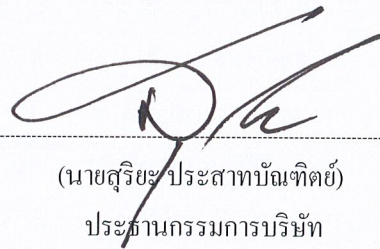 (นายสุริยะ ประสาทบัณฑิตย์)
ประธานกรรมการบริษัท